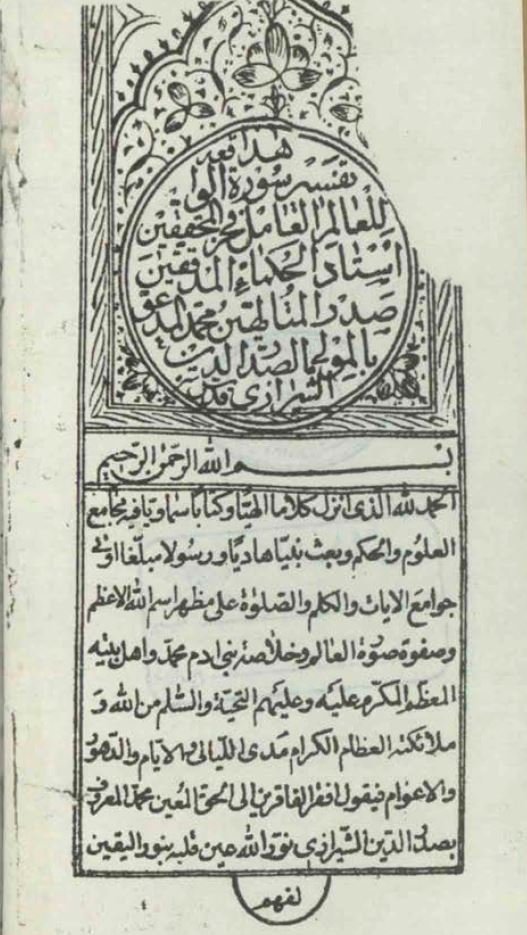 هذا
تفسير سورة الوا
للعالم العامل فخر المحققين
استاد الحكماء المدققين
صدر المتالهين محمد المدعو
بالمولى صدر الدين
الشيرازى
بسم الله الرحمن الرحيم
الحمد لله الذى انزل كلاما الهيا وكتابا سماويا فيه مجامع
العلوم والحكم وبعث نبيا هاديا ورسولا مبلغا اوتى
جوامع الايات والكلم والصلوة على مظهر اسم الله الاعظم
وصفوة صورة العالم وخلاصة بنى ادم محمد واهل بيته
المعظم المكرم عليه وعليهم التحية والسلم من الله و
ملائكته العظام الكرام مدى الليالى والايام والدهور
والاعوام فيقول افقر الفاقرين الى الحق المعين محمد المعروف
بصدر الدين الشيرازى نور الله عين قلبه بنور اليقين
لفهم